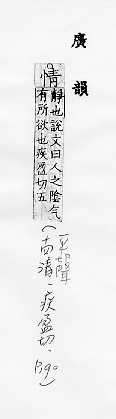 廣韻
情
靜也說文曰人之陰气
有所欲也疾盈切五
(平聲
下清‧疾盈切‧
P.190)